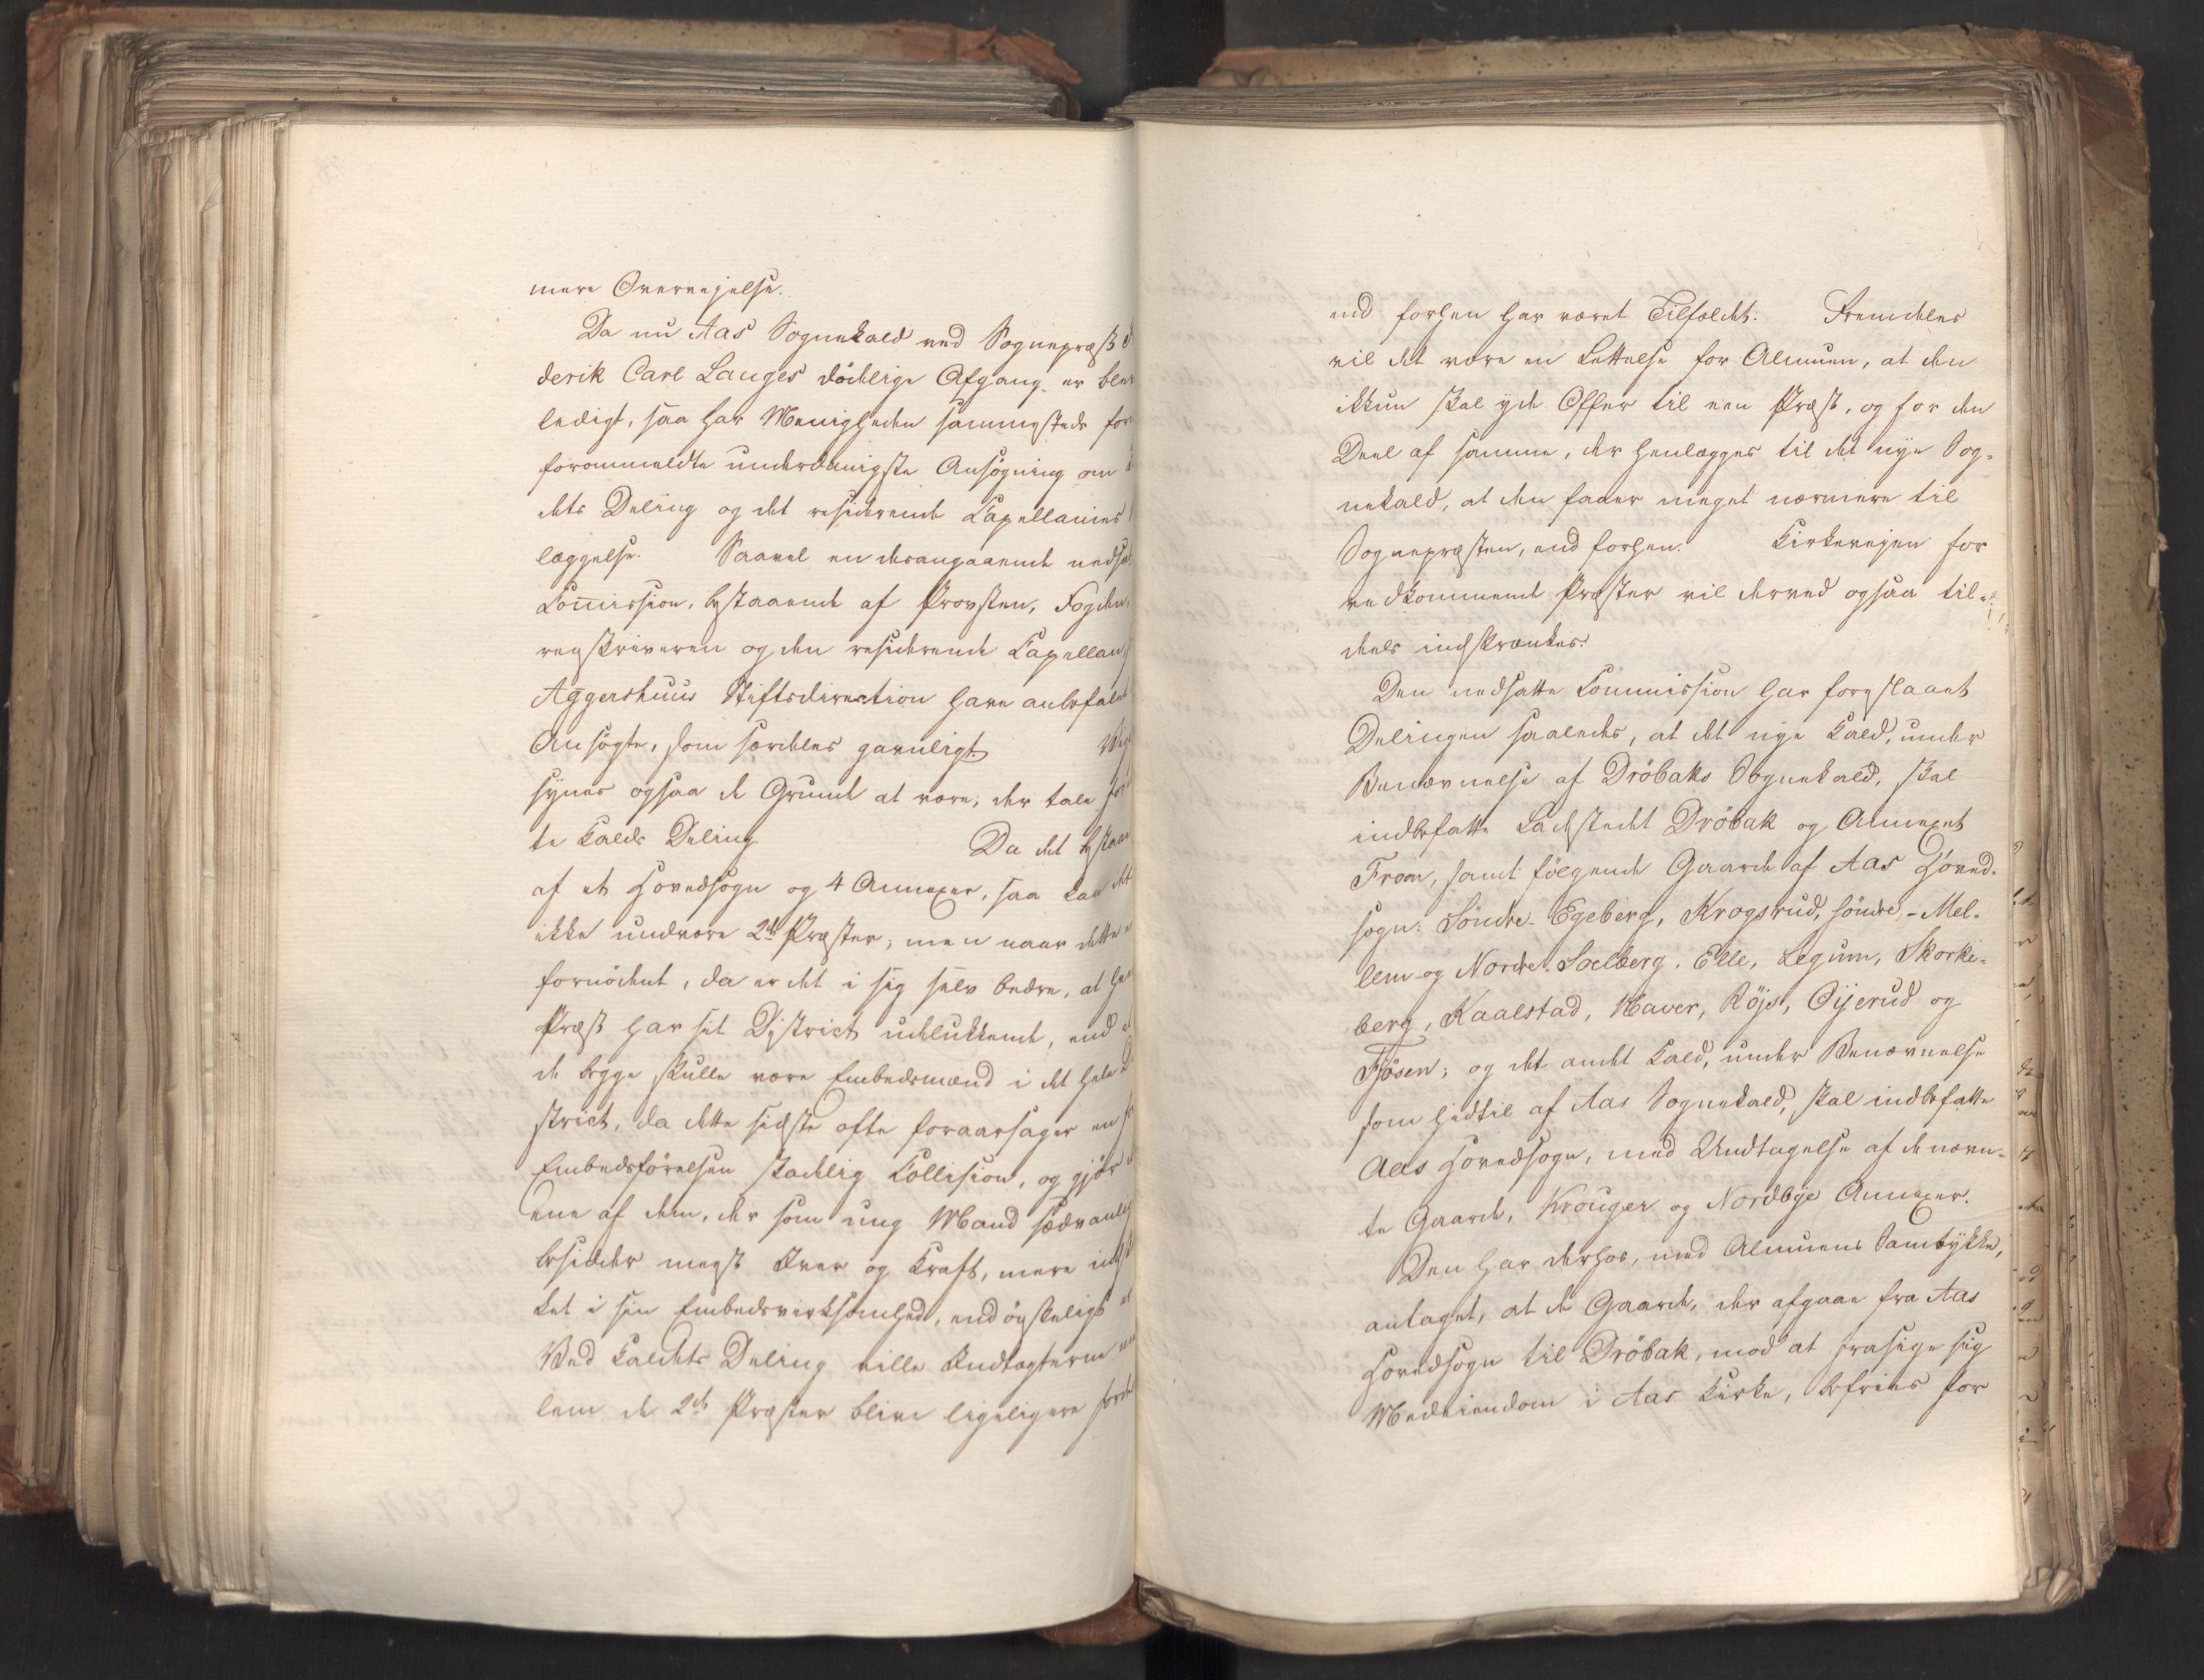 mere Overvejelse.
Da nu Aas Sognekald ved Sognepræst
derik Carl Langes dödelige Afgang er blev
ledigt, saa har Menigheden sammesteds for
forommeldte underdanigste Ansögning om
dets Deling og det residerende Capellanies
læggelse. Saavel en desangaaende nedsat
Com̄ission, bestaaende af Provsten, Fogden,
renskriveren og den residerende Capellan,
Aggershuus Stiftsdirection have anbefalet
Ansögte, som særdeles gavnligt. Vig
synes ogsaa de Grunde at være, der tale for
te Kalds Deling. Da det bestaar
af et Hovedsogn og 4 Annexer, saa kan det
ikke undvære 2de Præster; men naar dette
fornödent, da er det i sig selv bedre, at
Præst har sit District udelukkende, end
de begge skulle være Embedsmænd i det hele
strict, da dette sidste ofte foraarsager en
Embedsförelsen skadelig Collision, og gjör
ene af dem, der som ung Mand sædvanlig
besidder meest Iver og Kraft, mere indskr
ket i sin Embedsvirksomhed, end önskeligt
Ved Kaldets Deling ville Indtægterne
lem de 2de Præster blive ligeligere fordel
end forhen har været Tilfældet. Fremdeles
vil det være en Lettelse for Almuen, at den
ikkun skal yde Offer til een Præst, og for den
Deel af samme, der henlægges til det nye Sog-
nekald, at den faaer meget nærmere til
Sognepræsten, end forhen. Kirkevejen for
vedkommende Præster vil derved ogsaa til-
deels indskrænkes.
Den nedsatte Commission har foreslaaet
Delingen saaledes, at det nye Kald, under
Benævnelse af Dröbaks Sognekald, skal
indbefatte Ladestedet Dröbak og Annexet
Froen, samt fölgende Gaarde af Aas Hoved-
sogn: Söndre Egeberg, Krogsrud, söndre - Mel-
lem- og Nordre Soelberg, Elle, Legum, Skorke-
berg, Kaalstad, Haver, Röjs, Oijerud og
Fjösen; og det andet Kald, under Benævnelse
som hidtil af Aas Sognekald, skal indbefatte
Aas Hovedsogn, med Undtagelse af de nævn-
te Gaarde, Kroeger og Nordbye Annexer.
Den har derhos, med Almuens Samtykke,
antaget, at de Gaarde, der afgaae fra Aas
Hovedsogn til Dröbak, mod at frasige sig
Medeiendom i Aas Kirke, befries for